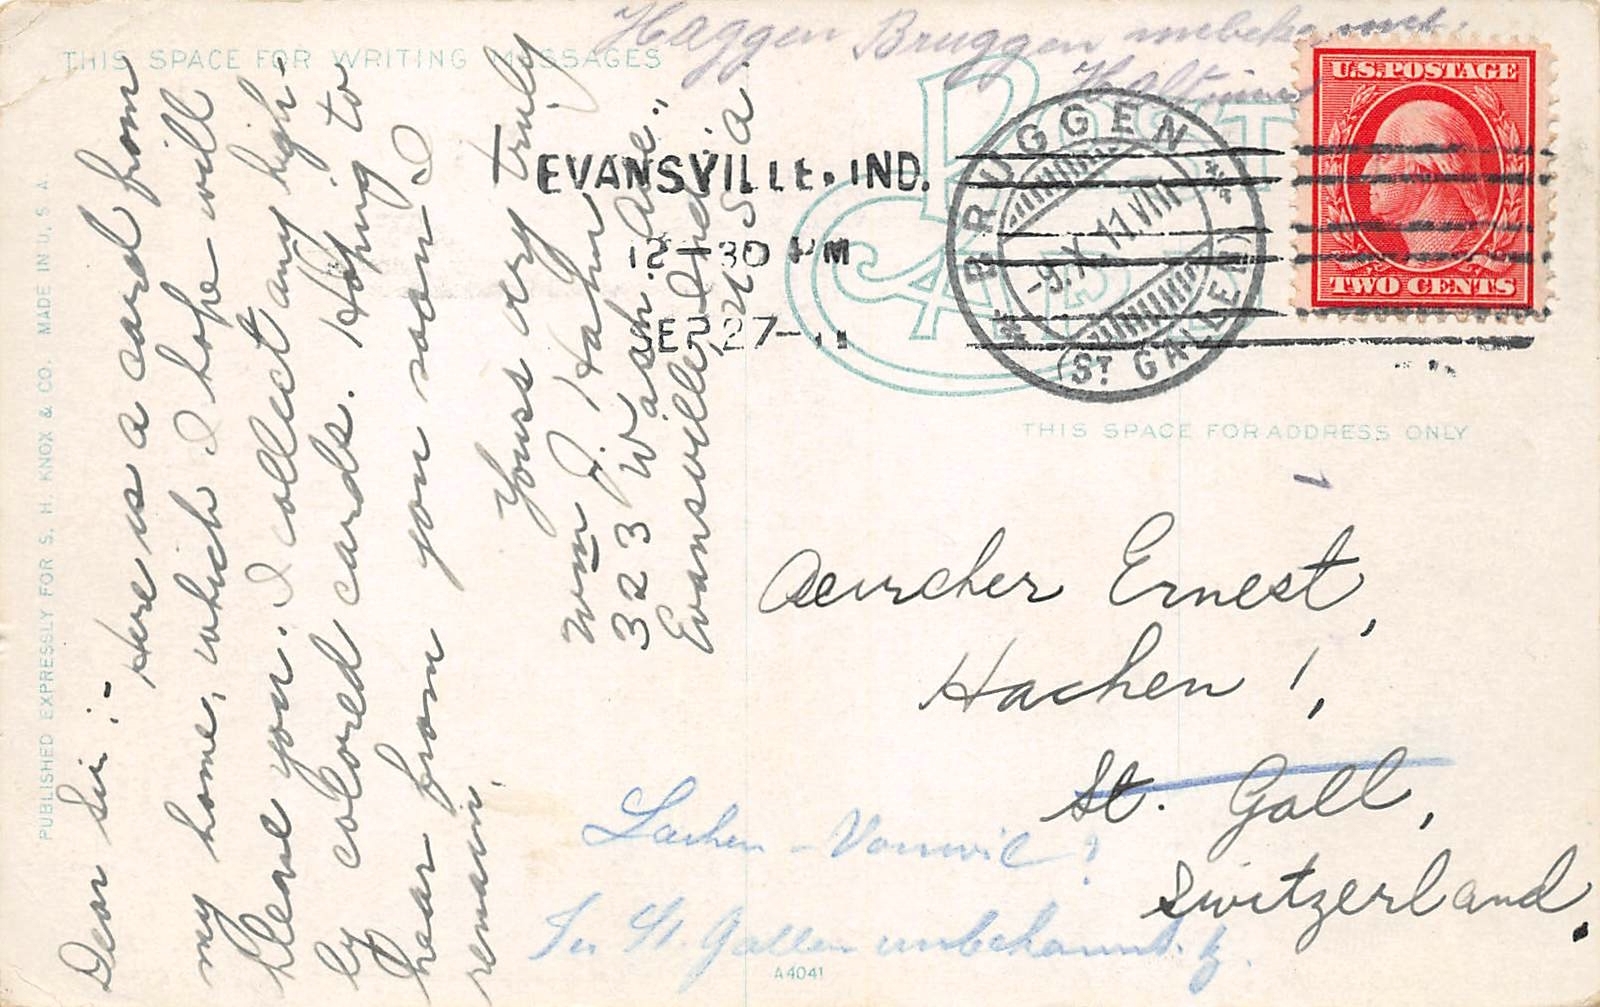 THIS SPACE FOR WRITING MESSAGES
Haggen Bruggen unbekannt.
U.S. POSTAGE
TWO CENTS
POST CARD
EVANSVILLE, IND.
12-30 PM
SEP 27-11
BRUGGEN
-9.X.11.VIII
(ST GALLEN)
THIS SPACE FOR ADDRESS ONLY
PUBLISHED EXPRESSLY FOR S. H. KNOX & CO. MADE IN U. S. A.
Dear Sir:- Here is a card from
my home, which I hope will
please you. I collect any high-
ly colored cards. Hoping to
hear from you soon I
remain.
Yours very truly
Wm J. Hahn
323 Wash. Ave.,
Evansville, Indi
U S a
Aeurcher Ernest,
Hachen!,
St. Gall,
Switzerland.
Lachen-Vonwil?
In St. Gallen unbekannt.
A4041